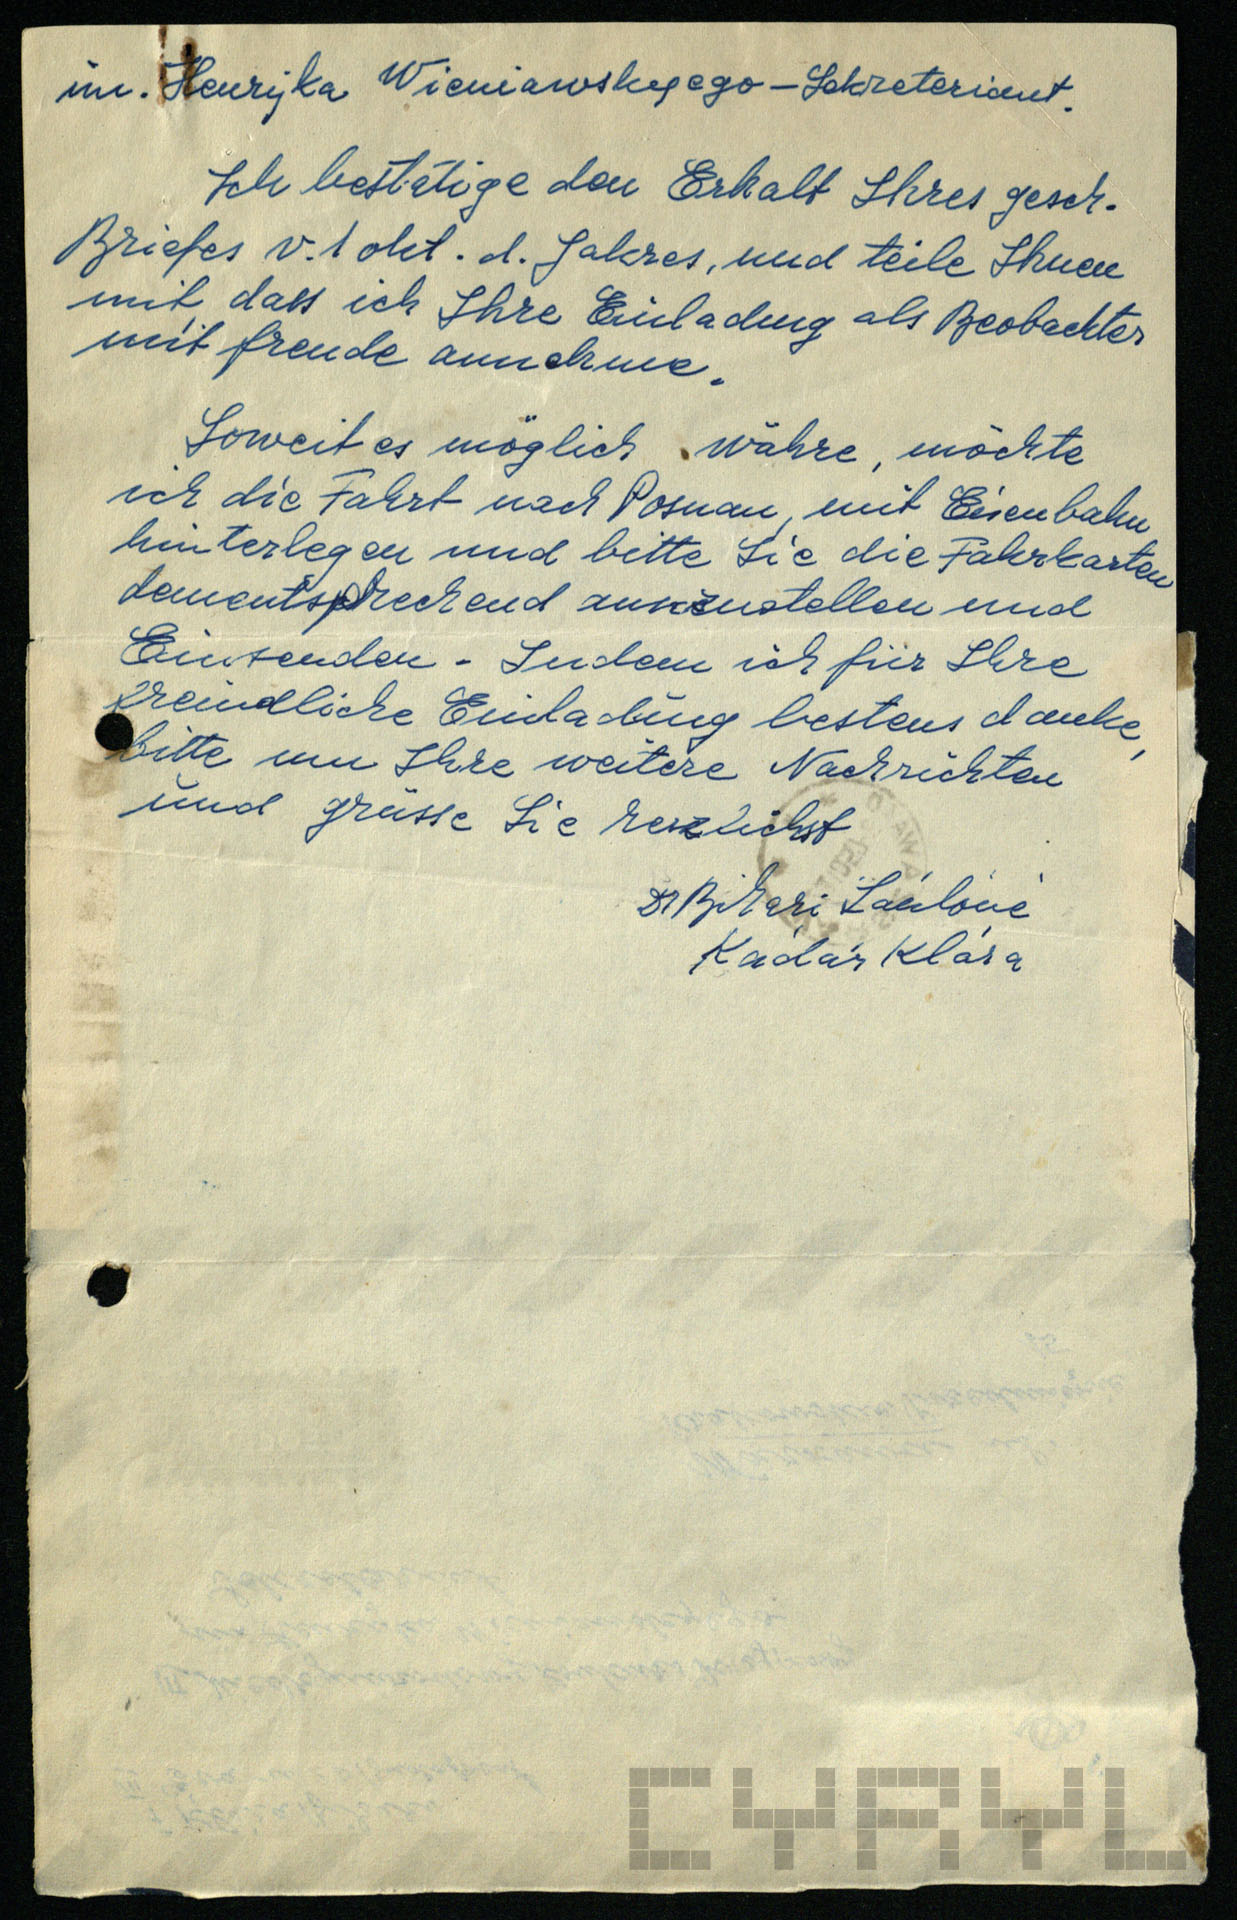 im. Henryka Wieniawskyego – Sekreteriaut.
Ich bestätige den Erhalt Ihres gesch.
Briefes v. 1 okt. d. Jahres, und teile Ihnen
mit, dass ich Ihre Einladung als Beobachter
mit freude annehme.
Soweit es möglich währe, möchte
ich die Fahrt nach Posnan, mit Eisenbahn
hinterlegen und bitte Sie die Fahrkarten
dementsprechend auszustellen und
Einsenden - Indem ich für Ihre
freundliche Einladung bestens danke,
bitte um Ihre weitere Nachrichten
und grüsse Sie herzlichst
Dr Bihari
Kádár Klára
CYRYL